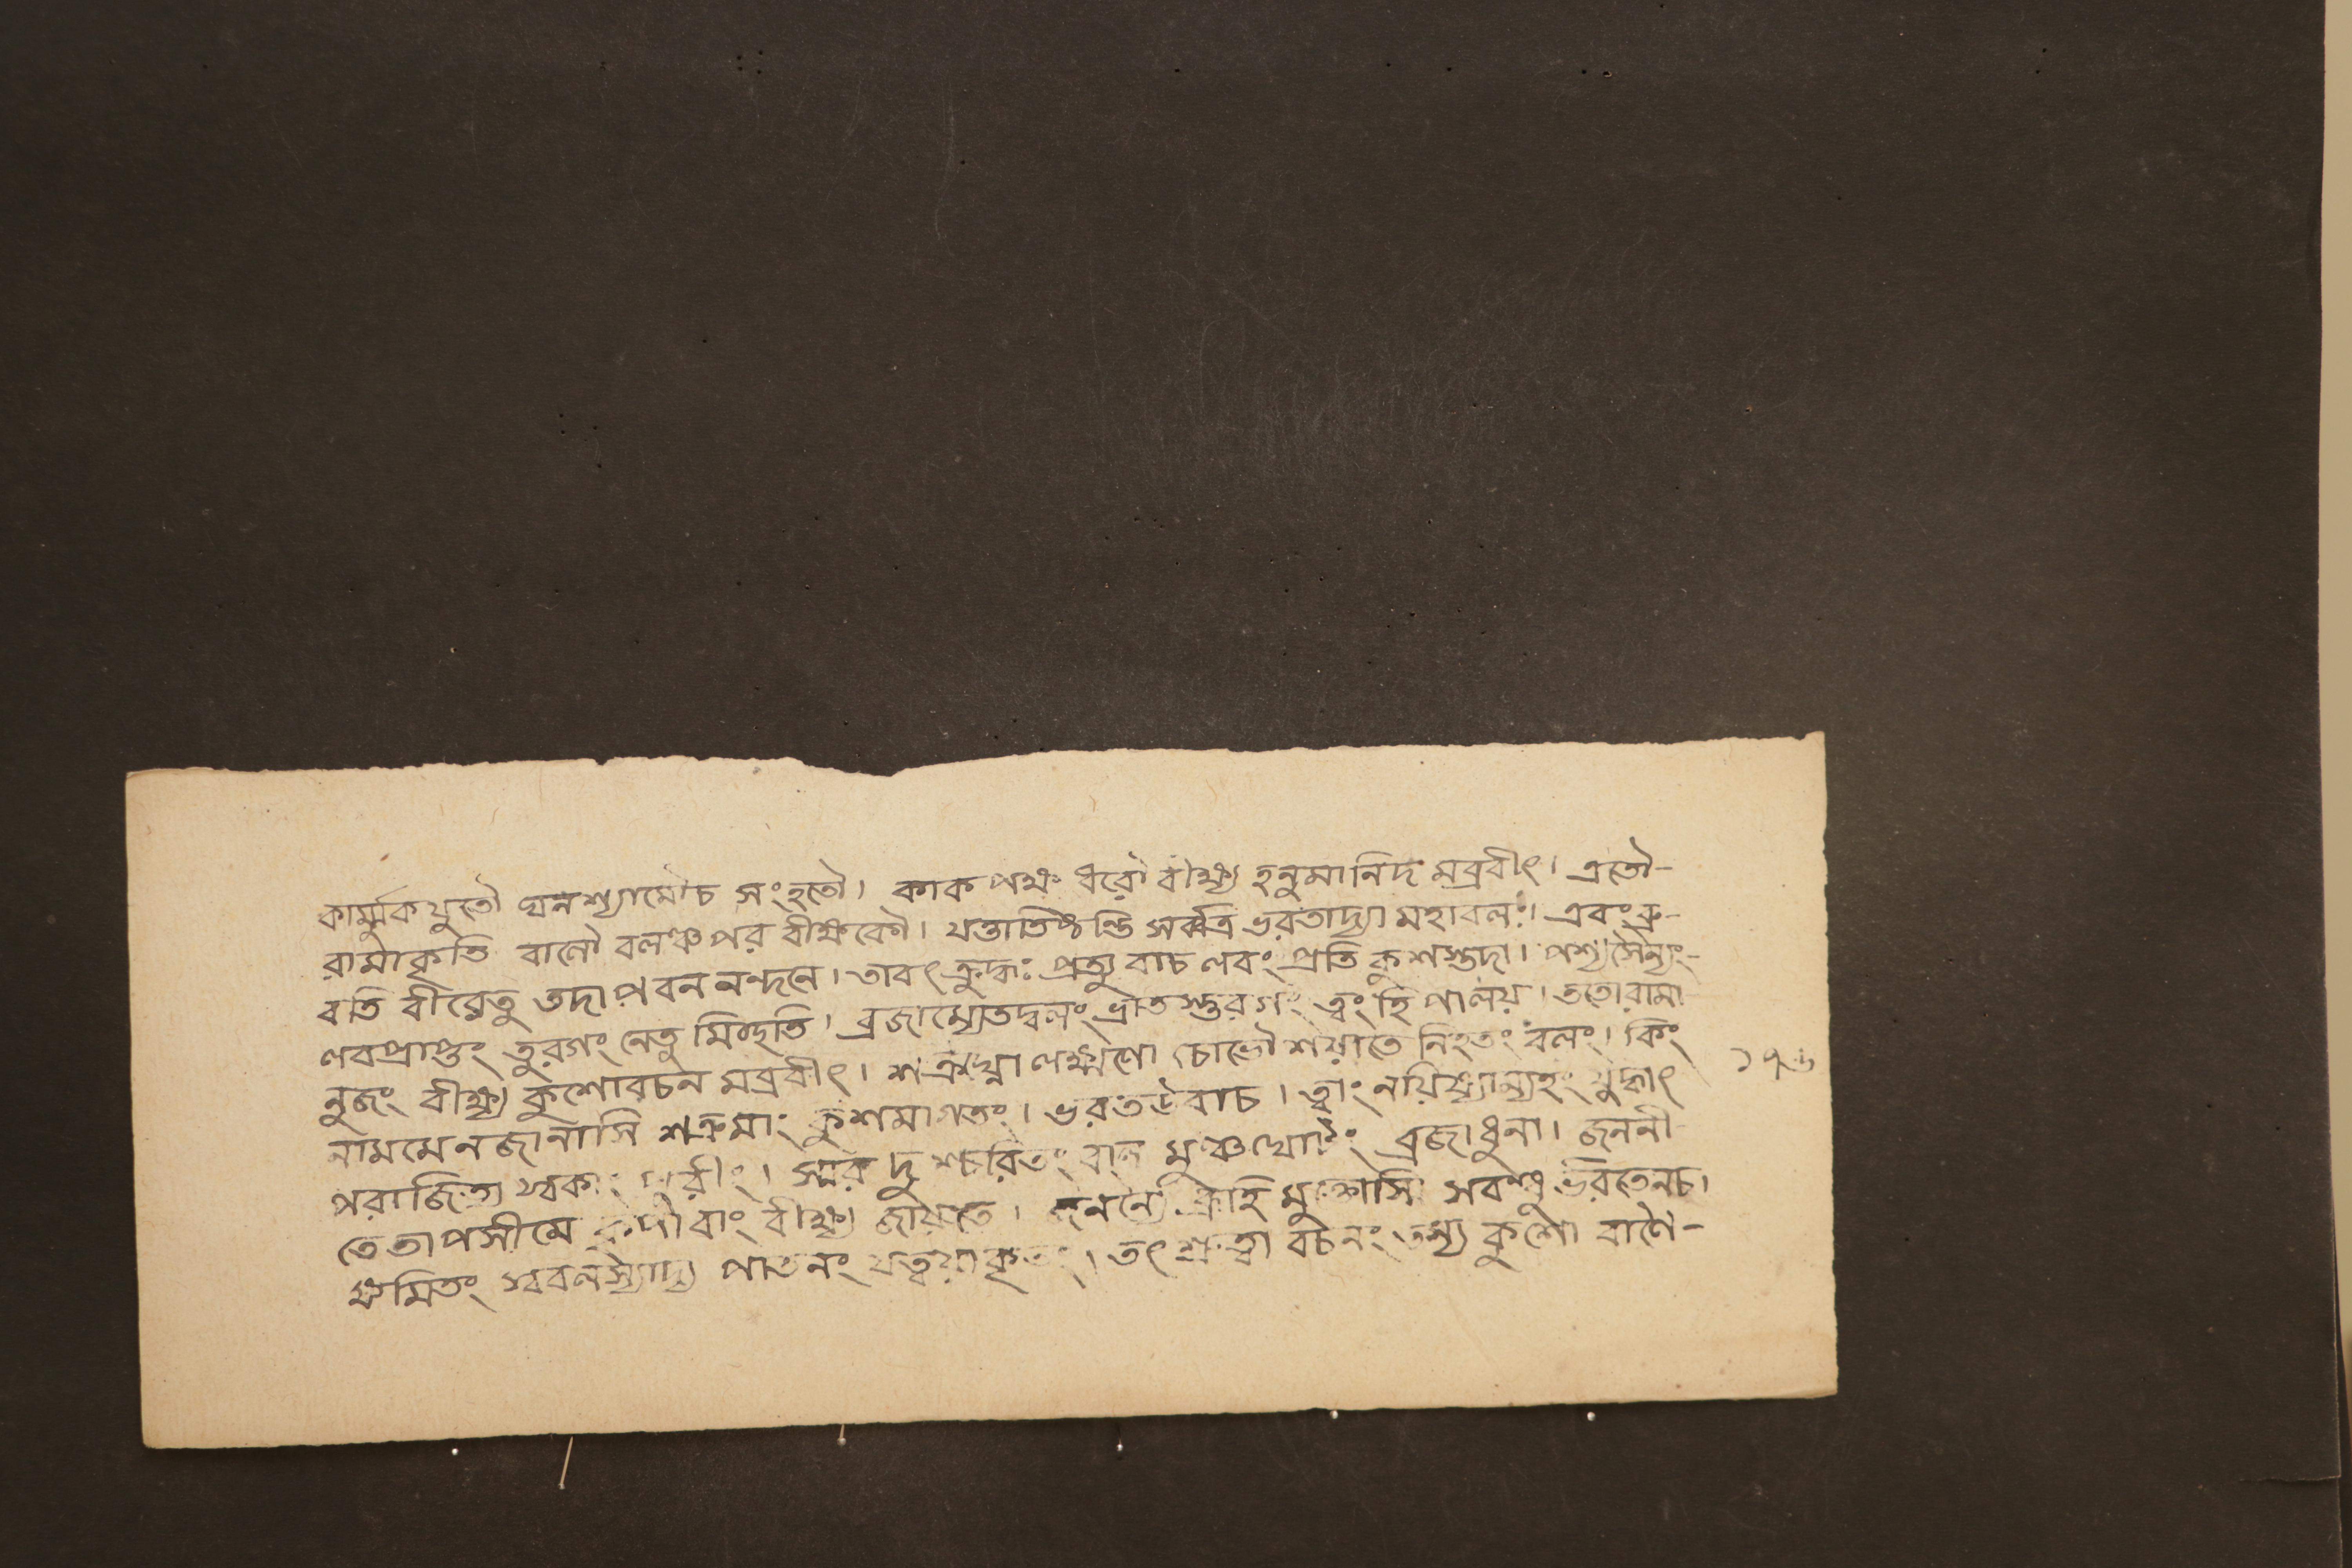 কার্ম্মুকযুতৌ ঘনশ্যামৌচ সংহতৌ। কাকপক্ষ ধরৌ বীক্ষ্য হনুমানিদ মব্রবীৎ। এতৌ-
রামাকৃতি বালৌ বলঞ্চপর বীক্ষকৌ। যত্তাতিষ্ঠন্তি সর্ব্বত্র ভরতাদ্যা মহাবলাঃ। এবংব্রু-
বতি বীরেতু তদাপবননন্দনে। তাবৎক্রুদ্ধঃ প্রত্যুবাচ লবংপ্রতি কুশস্তদা। পশ্যসৈন্যং-
লবপ্রাপ্তং তুরগং নেতু মিচ্ছতি। ব্রজাম্যেতদ্বলং ভ্রাতস্তুরগং ত্বংহি পালয়। ততোরামা
নুজং বীক্ষ্য কুশোবচন মব্রবীৎ। শত্রুঘ্নো লক্ষ্মণো চোভৌ শয়াতে নিহতং বলং। কিং
নামমেনজানাসি শত্রুমাং কুশমাগতং। ভরতউবাচ। ত্বাংনয়িষ্যাম্যহং যুদ্ধাৎ ১৭৬
পরাজিত্য স্বকাং পুরীং। স্মর দুশ্চরিতং বাল মুঞ্চ ব্রজাধুনা। জননী
তেতাপসীমে কৃপা বীক্ষ্য জায়তে। জনন্যৈ ব্রূহি মুক্তোসি সবন্ধু ভরতেনচ।
ক্ষমিতং স্ববলস্যাদ্য পাতনং যত্ত্বয়াকৃতং। তৎশ্রুত্বা বচনং তস্য কুশো বাণৈ-